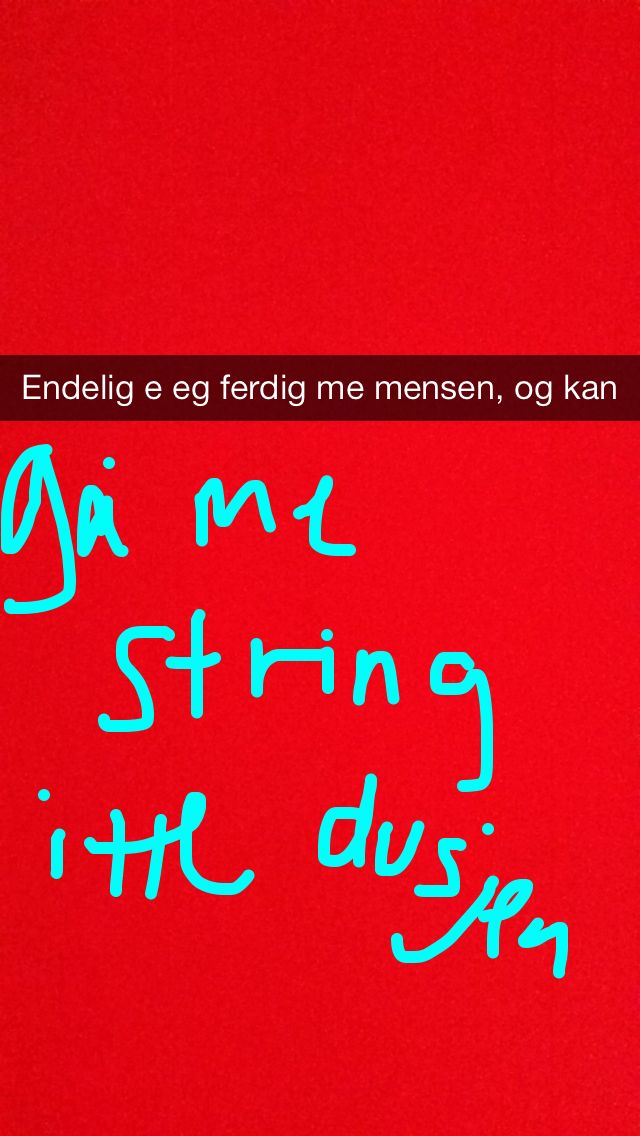 Endelig e eg ferdig me mensen, og kan
gå me
string
itte dusjen